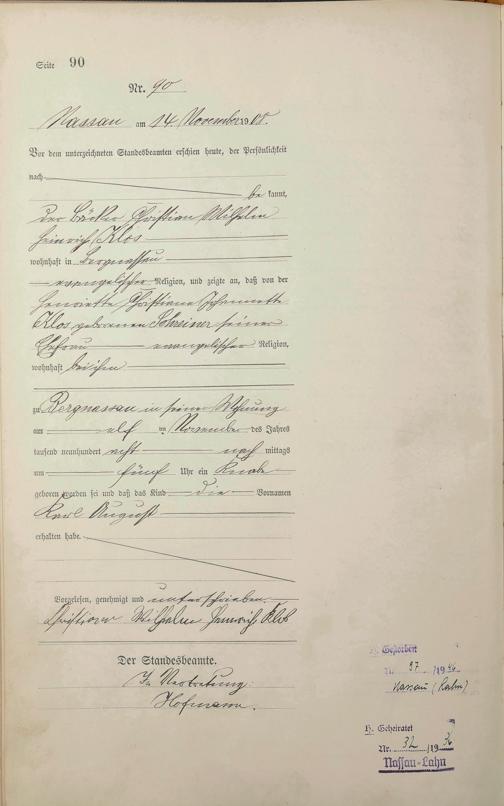 Seite 90
Nr. 90
Nassau am 14 November 1908.
Vor dem unterzeichneten Standesbeamten erschien heute, der Persönlichkeit
nach
be kannt,
der Bäcker Christian Wilhelm
Heinrich Klos
wohnhaft in Bergnassau
evangelischer Religion, und zeigte an, daß von der
Henriette Christiane Johannette
Klos geborenen Schreiner seiner
Ehefrau evangelischer Religion,
wohnhaft bei ihm
zu Bergnassau in seiner Wohnung
am elf ten November des Jahres
tausend neunhundert acht nach mittags
um fünf Uhr ein Knabe
geboren worden sei und daß das Kind die Vornamen
Karl August
erhalten habe.
Vorgelesen, genehmigt und unterschrieben.
Christian Wilhelm Heinrich Klos
Der Standesbeamte.
In Vertretung:
Hofmann.
Gestorben
Nr. 97 /1946
Nassau (Lahn)
H. Geheiratet
Nr. 32 /1936
Nassau-Lahn